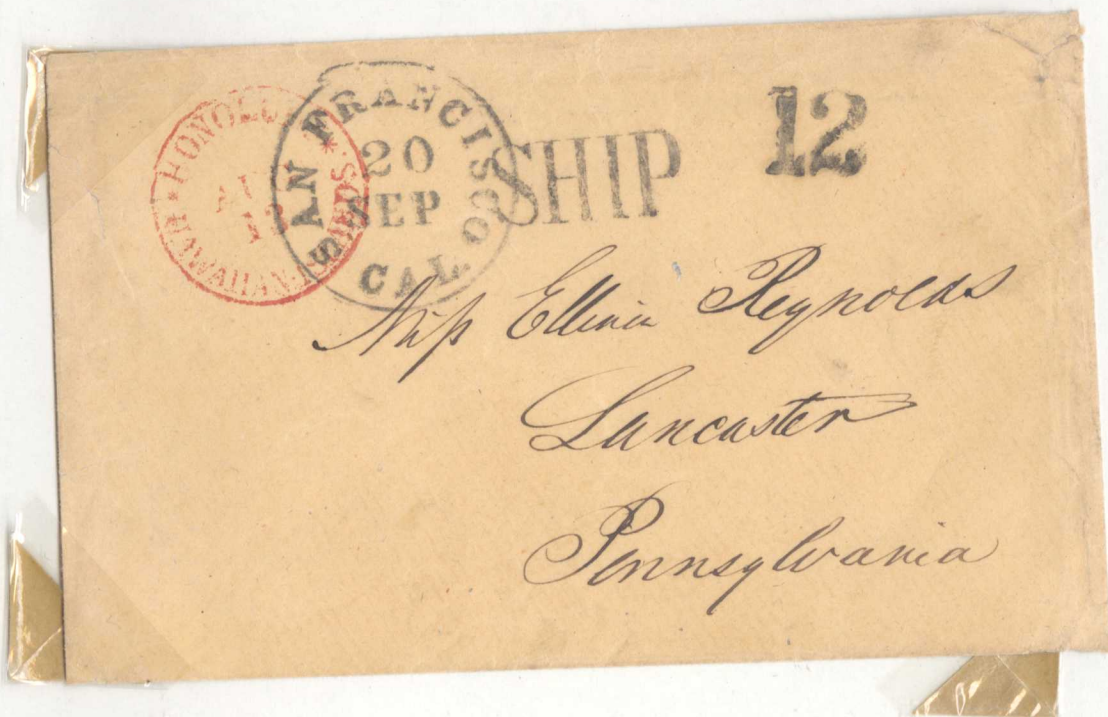 HONOLULU * HAWAIIAN ISLANDS. *
SAN FRANCISCO CAL.
20
SEP
SHIP
12
Miss Ellinia Reynolds
Lancaster
Pennsylvania